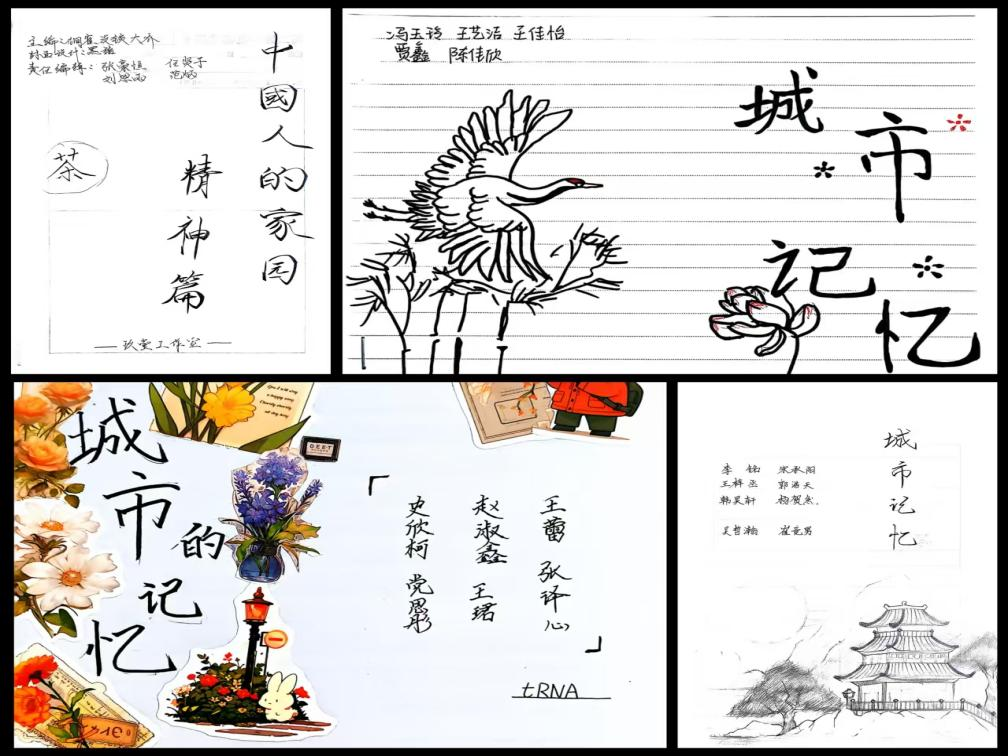 主编:
封面设计:
责任编辑: 张豪恒 任贤子
刘思雨
中國人的家园
精神篇
茶
工作室
冯玉玲 王艺洁 王佳怡
贾鑫 陈佳欣
城市
记忆
城市的
记忆
「
王蕾 张译心
赵淑鑫 王珺
史欣柯 党恩彤
」
tRNA
城市记忆
李铭
王梓丞 郭浩天
韩昊轩 杨贺然
吴哲瀚 崔竞男